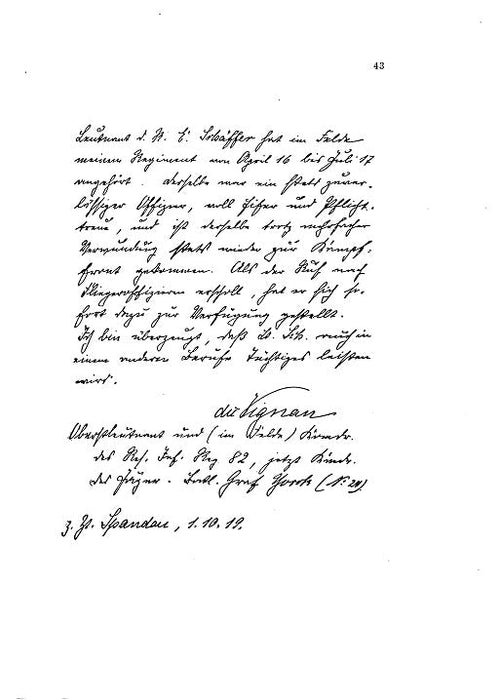 43
Leutnant d. R. E. Schäffer hat im Felde
meinem Regiment von April 16 bis Juli 17
angehört. Derselbe war ein stets zuver-
lässiger Offizier, voll Eifer und Pflicht-
treue, und ist derselbe trotz mehrfacher
Verwundung stets wieder zur Kampf-
front gekommen. Als der Ruf nach
Fliegeroffizieren erscholl, hat er sich so-
fort dazu zur Verfügung gestellt.
Ich bin überzeugt, daß L. Sch. auch in
einem anderen Berufe Tüchtiges leisten
wird.
du Vignau
Oberstleutnant und (im Felde) Kmdr.
des Res. Inf. Reg 82, jetzt Kmdr.
des Jäger. Batl. Graf Yorck (No 20)
z. Zt. Spandau, 1.10.19.